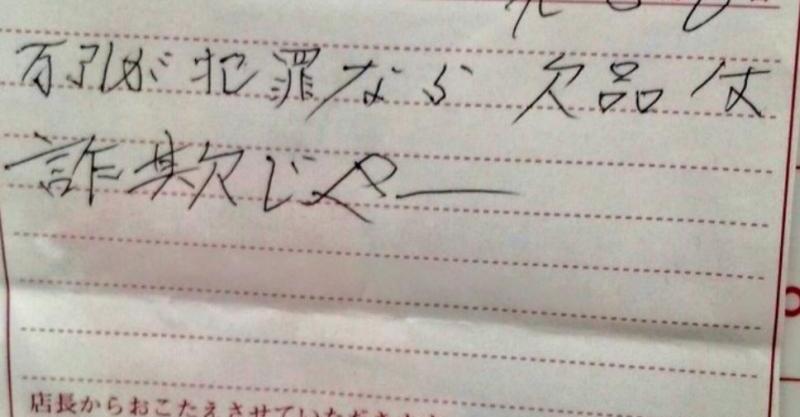 万引が犯罪なら 欠品は
詐欺じゃー
店長からおこたえさせていただきます